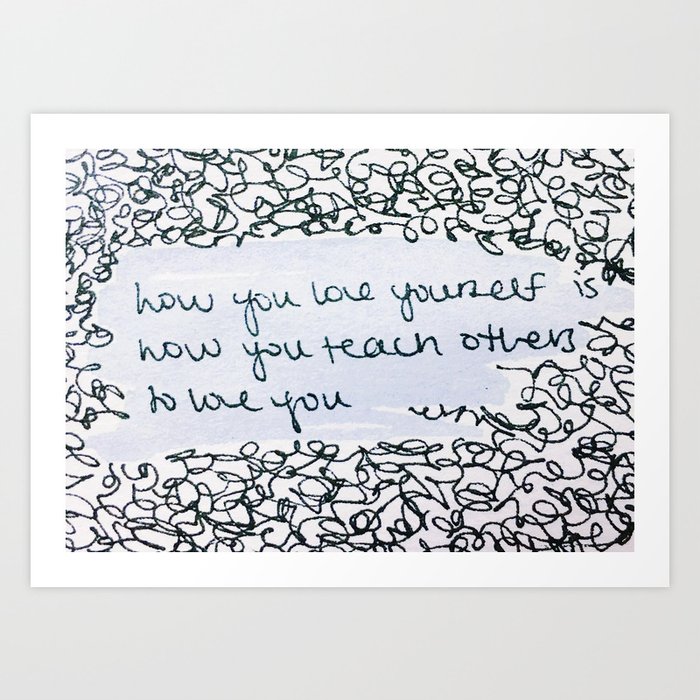 how you love yourself is
how you teach others
to love you